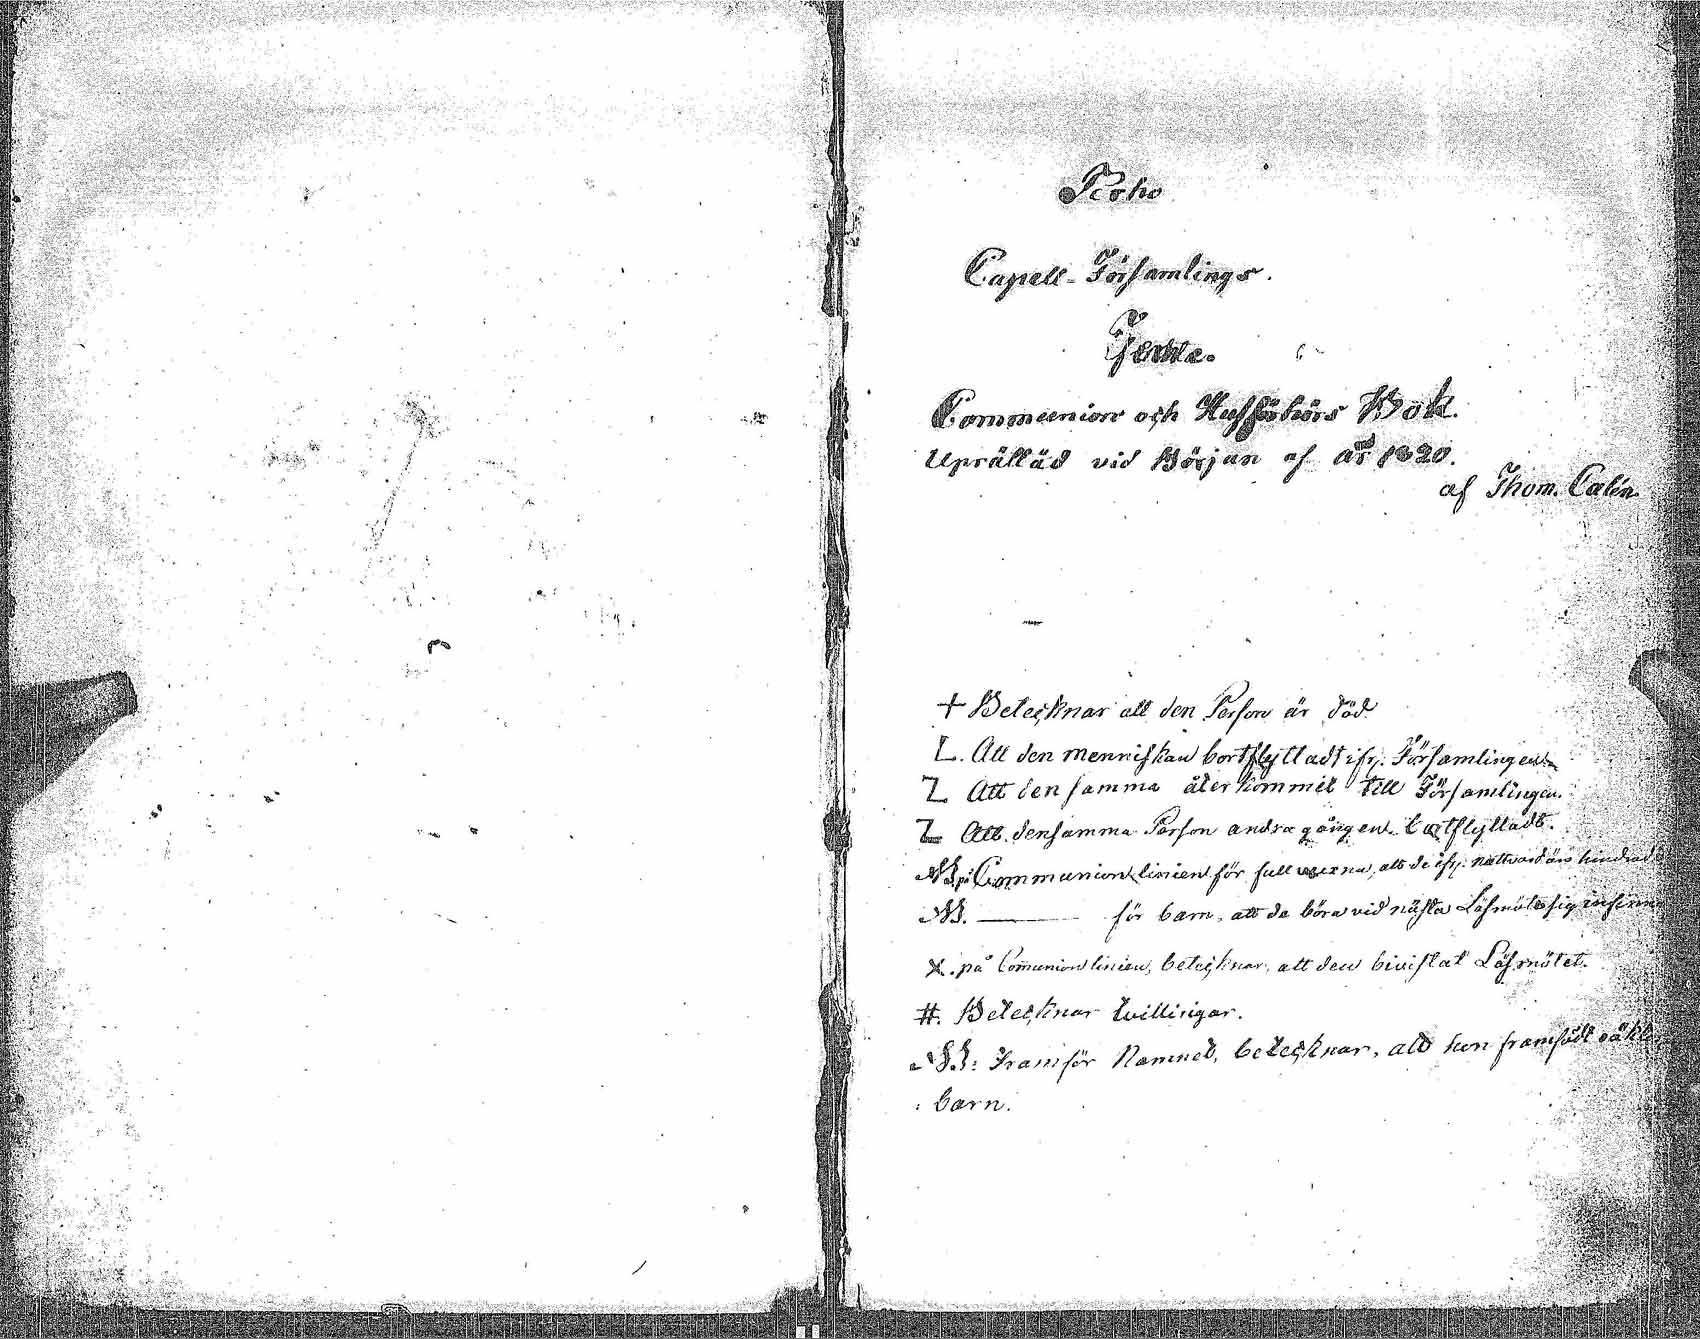 Perho
Capell-Församlings.
Communion och Husförhörs Bok.
Uprättäd vid Början af år 1820.
af Thom. Calén
+ Betecknar att den Person är död
L. Att den menniskan bortflyttadt ifr. Församlingen
Z Att den samma återkommit till Församlingen.
Z Att. densamma Person andra gången bortflyttadt.
NB. på Communions linien för full vuxna, att de ifr. nattvard äro hindrade
NB. ——— för barn, att de böra vid nästa Läsmöte sig infinna
X. på Communion linien, betecknar, att den bivistat Läsmötet.
#. Betecknar tvillingar.
NB: Framför Namnet, betecknar, att hon framfödt oäkta
: barn.